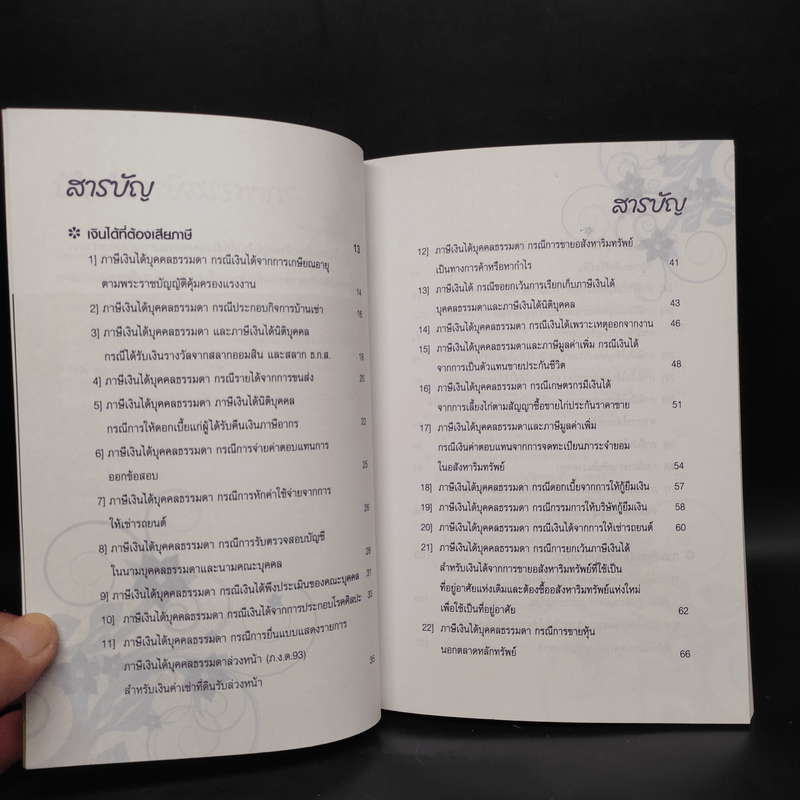 สารบัญ
✲ เงินได้ที่ต้องเสียภาษี 13
1] ภาษีเงินได้บุคคลธรรมดา กรณีเงินได้จากการเกษียณอายุ
ตามพระราชบัญญัติคุ้มครองแรงงาน 14
2] ภาษีเงินได้บุคคลธรรมดา กรณีประกอบกิจการบ้านเช่า 16
3] ภาษีเงินได้บุคคลธรรมดา และภาษีเงินได้นิติบุคคล
กรณีได้รับเงินรางวัลจากสลากออมสิน และสลาก ธ.ก.ส. 18
4] ภาษีเงินได้บุคคลธรรมดา กรณีรายได้จากการขนส่ง 20
5] ภาษีเงินได้บุคคลธรรมดา ภาษีเงินได้นิติบุคคล
กรณีการให้ดอกเบี้ยแก่ผู้ได้รับคืนเงินภาษีอากร 22
6] ภาษีเงินได้บุคคลธรรมดา กรณีการจ่ายค่าตอบแทนการ
ออกข้อสอบ 25
7] ภาษีเงินได้บุคคลธรรมดา กรณีการหักค่าใช้จ่ายจากการ
ให้เช่ารถยนต์ 26
8] ภาษีเงินได้บุคคลธรรมดา กรณีการรับตรวจสอบบัญชี
ในนามบุคคลธรรมดาและนามคณะบุคคล 28
9] ภาษีเงินได้บุคคลธรรมดา กรณีเงินได้พึงประเมินของคณะบุคคล 31
10] ภาษีเงินได้บุคคลธรรมดา กรณีเงินได้จากการประกอบโรคศิลปะ 33
11] ภาษีเงินได้บุคคลธรรมดา กรณีการยื่นแบบแสดงรายการ
ภาษีเงินได้บุคคลธรรมดาล่วงหน้า (ภ.ง.ด.93)
สำหรับเงินค่าเช่าที่ดินรับล่วงหน้า 35
สารบัญ
12] ภาษีเงินได้บุคคลธรรมดา กรณีการขายอสังหาริมทรัพย์
เป็นทางการค้าหรือหากำไร 41
13] ภาษีเงินได้ กรณีขอยกเว้นการเรียกเก็บภาษีเงินได้
บุคคลธรรมดาและภาษีเงินได้นิติบุคคล 43
14] ภาษีเงินได้บุคคลธรรมดา กรณีเงินได้เพราะเหตุออกจากงาน 46
15] ภาษีเงินได้บุคคลธรรมดาและภาษีมูลค่าเพิ่ม กรณีเงินได้
จากการเป็นตัวแทนขายประกันชีวิต 48
16] ภาษีเงินได้บุคคลธรรมดา กรณีเกษตรกรมีเงินได้
จากการเลี้ยงไก่ตามสัญญาซื้อขายไก่ประกันราคาขาย 51
17] ภาษีเงินได้บุคคลธรรมดาและภาษีมูลค่าเพิ่ม
กรณีเงินค่าตอบแทนจากการจดทะเบียนภาระจำยอม
ในอสังหาริมทรัพย์ 54
18] ภาษีเงินได้บุคคลธรรมดา กรณีดอกเบี้ยจากการให้กู้ยืมเงิน 57
19] ภาษีเงินได้บุคคลธรรมดา กรณีกรรมการให้บริษัทกู้ยืมเงิน 58
20] ภาษีเงินได้บุคคลธรรมดา กรณีเงินได้จากการให้เช่ารถยนต์ 60
21] ภาษีเงินได้บุคคลธรรมดา กรณีการยกเว้นภาษีเงินได้
สำหรับเงินได้จากการขายอสังหาริมทรัพย์ที่ใช้เป็น
ที่อยู่อาศัยแห่งเดิมและต้องซื้ออสังหาริมทรัพย์แห่งใหม่
เพื่อใช้เป็นที่อยู่อาศัย 62
22] ภาษีเงินได้บุคคลธรรมดา กรณีการขายหุ้น
นอกตลาดหลักทรัพย์ 66